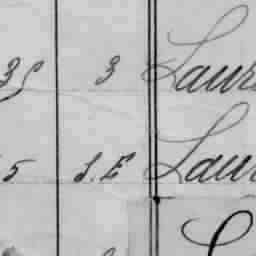 35 3 Laur
5 S.E Laur